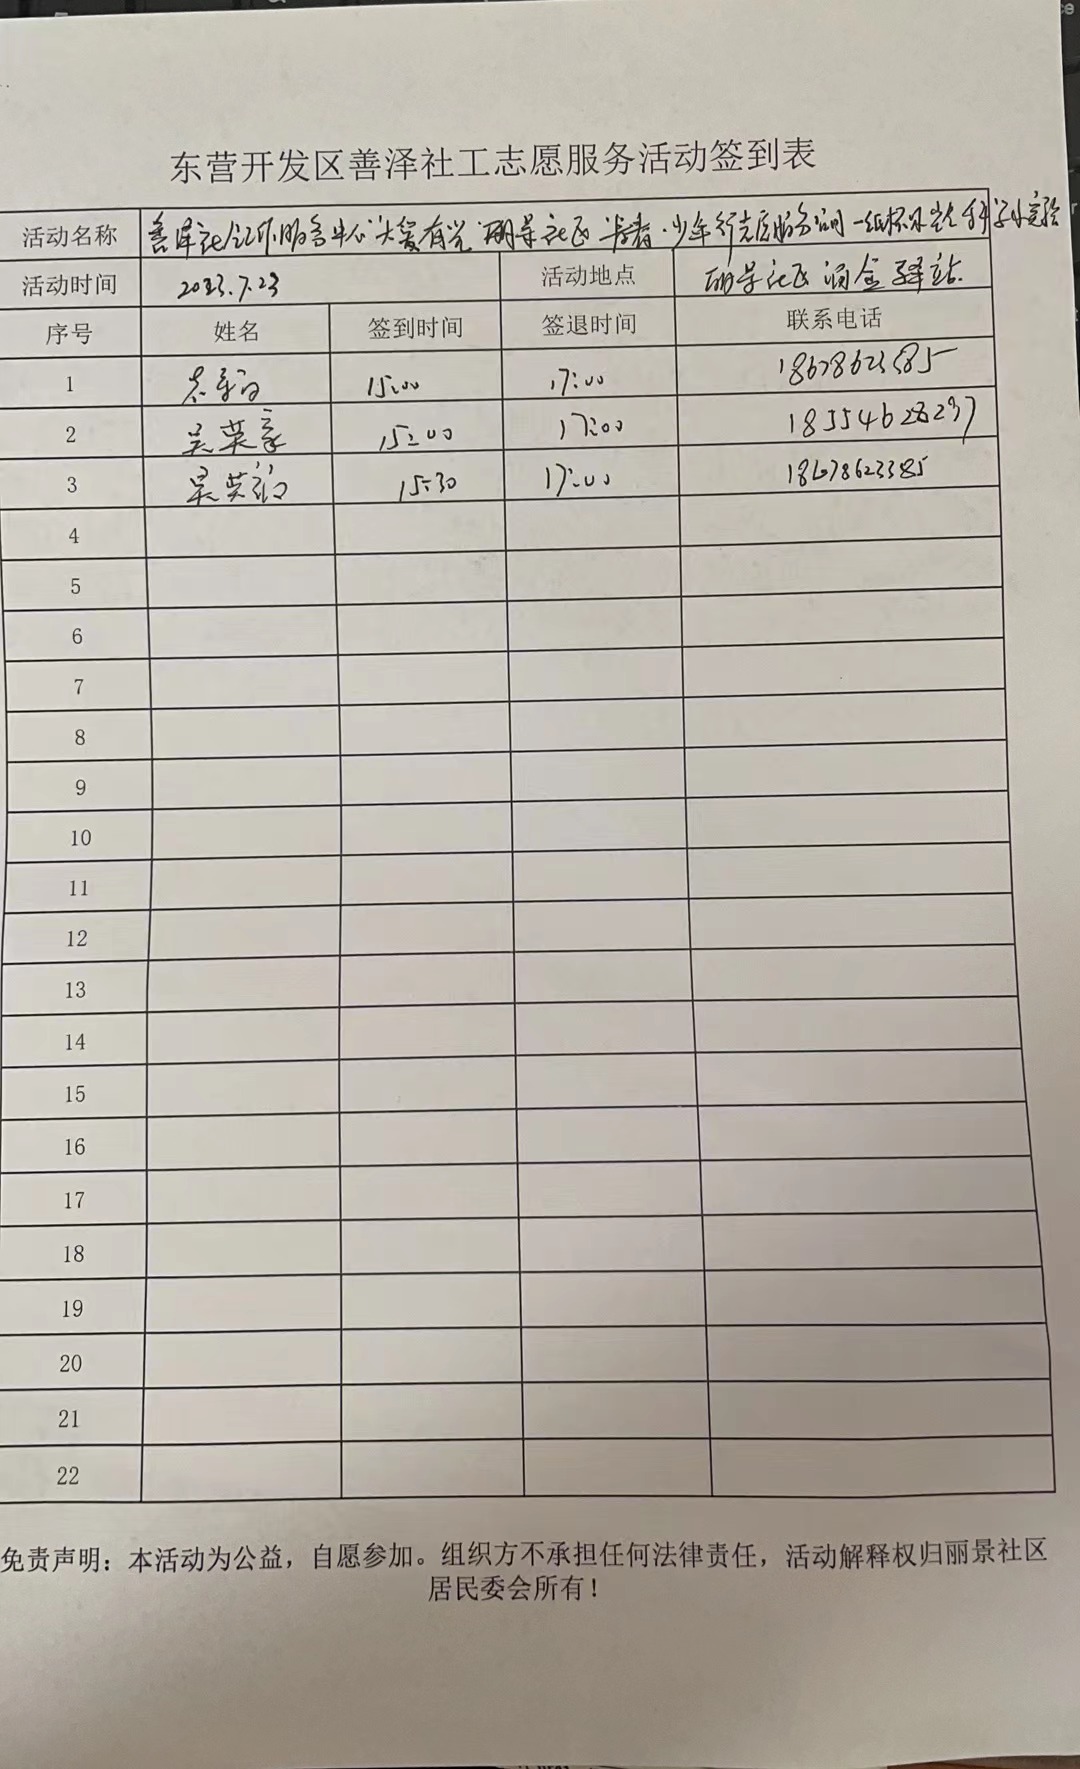 东营开发区善泽社工志愿服务活动签到表
活动名称 善泽社会工作服务中心"大爱有光 丽景社区 少年行志愿服务 纸杯 科学小实验
活动时间 2023.7.23 活动地点 丽景社区 驿站
序号 姓名 签到时间 签退时间 联系电话
1 15:00 17:00
2 吴英豪 15:00 17:00 18554628237
3 吴英 15:30 17:00 18678623385
4
5
6
7
8
9
10
11
12
13
14
15
16
17
18
19
20
21
22
免责声明：本活动为公益，自愿参加。组织方不承担任何法律责任，活动解释权归丽景社区
居民委会所有！